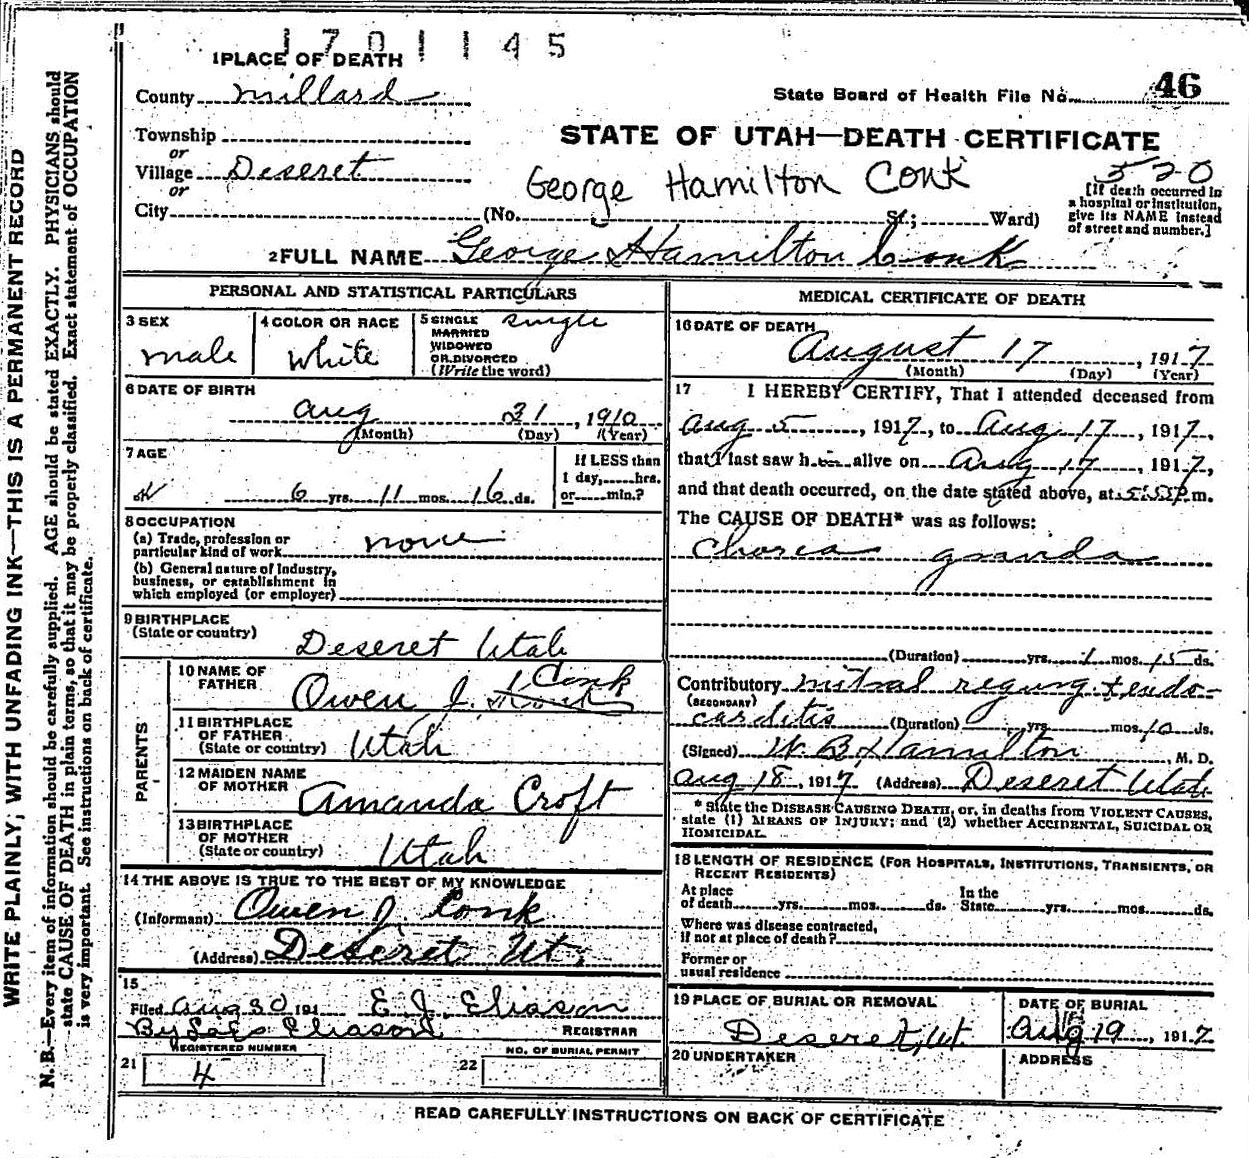 1701145
1 PLACE OF DEATH
County Millard
State Board of Health File No. 46
Township
or
Village Deseret
or
City (No. St.; Ward)
STATE OF UTAH—DEATH CERTIFICATE
George Hamilton Conk
520
[If death occurred in
a hospital or institution,
give its NAME instead
of street and number.]
2 FULL NAME George Hamilton Conk
PERSONAL AND STATISTICAL PARTICULARS
3 SEX
male
4 COLOR OR RACE
White
5 SINGLE
MARRIED
WIDOWED
OR DIVORCED
(Write the word)
single
6 DATE OF BIRTH
Aug 31, 1910
(Month) (Day) (Year)
7 AGE
6 yrs. 11 mos. 16 ds.
If LESS than
1 day, hrs.
or min.?
8 OCCUPATION
(a) Trade, profession or
particular kind of work none
(b) General nature of Industry,
business, or establishment in
which employed (or employer)
9 BIRTHPLACE
(State or country) Deseret Utah
PARENTS
10 NAME OF
FATHER
Owen J. Conk
11 BIRTHPLACE
OF FATHER
(State or country) Utah
12 MAIDEN NAME
OF MOTHER Amanda Croft
13 BIRTHPLACE
OF MOTHER
(State or country) Utah
14 THE ABOVE IS TRUE TO THE BEST OF MY KNOWLEDGE
(Informant) Owen J Conk
(Address) Deseret Ut.
15
Filed Aug 30 191 E. J. Eliason
By Eliason REGISTRAR
REGISTERED NUMBER
21 4
NO. OF BURIAL PERMIT
22
MEDICAL CERTIFICATE OF DEATH
16 DATE OF DEATH
August 17, 1917
(Month) (Day) (Year)
17 I HEREBY CERTIFY, That I attended deceased from
Aug 5, 1917, to Aug 17, 1917,
that I last saw h alive on Aug 17, 1917,
and that death occurred, on the date stated above, at m.
The CAUSE OF DEATH* was as follows:
Chorea
(Duration) yrs. 1 mos. 15 ds.
Contributory mitral regurg + endo-
(SECONDARY)
carditis (Duration) yrs. mos. 10 ds.
(Signed) W. B. Hamilton, M. D.
Aug 18, 1917 (Address) Deseret Utah
* State the DISEASE CAUSING DEATH, or, in deaths from VIOLENT CAUSES,
state (1) MEANS OF INJURY; and (2) whether ACCIDENTAL, SUICIDAL OR
HOMICIDAL.
18 LENGTH OF RESIDENCE (FOR HOSPITALS, INSTITUTIONS, TRANSIENTS, OR
RECENT RESIDENTS)
At place
of death yrs. mos. ds.
In the
State yrs. mos. ds.
Where was disease contracted,
if not at place of death?
Former or
usual residence
19 PLACE OF BURIAL OR REMOVAL
Deseret, Ut.
DATE OF BURIAL
Aug 19, 1917
20 UNDERTAKER
ADDRESS
READ CAREFULLY INSTRUCTIONS ON BACK OF CERTIFICATE
WRITE PLAINLY, WITH UNFADING INK—THIS IS A PERMANENT RECORD
N. B.—Every item of information should be carefully supplied. AGE should be stated EXACTLY. PHYSICIANS should
state CAUSE OF DEATH in plain terms, so that it may be properly classified. Exact statement of OCCUPATION
is very important. See instructions on back of certificate.